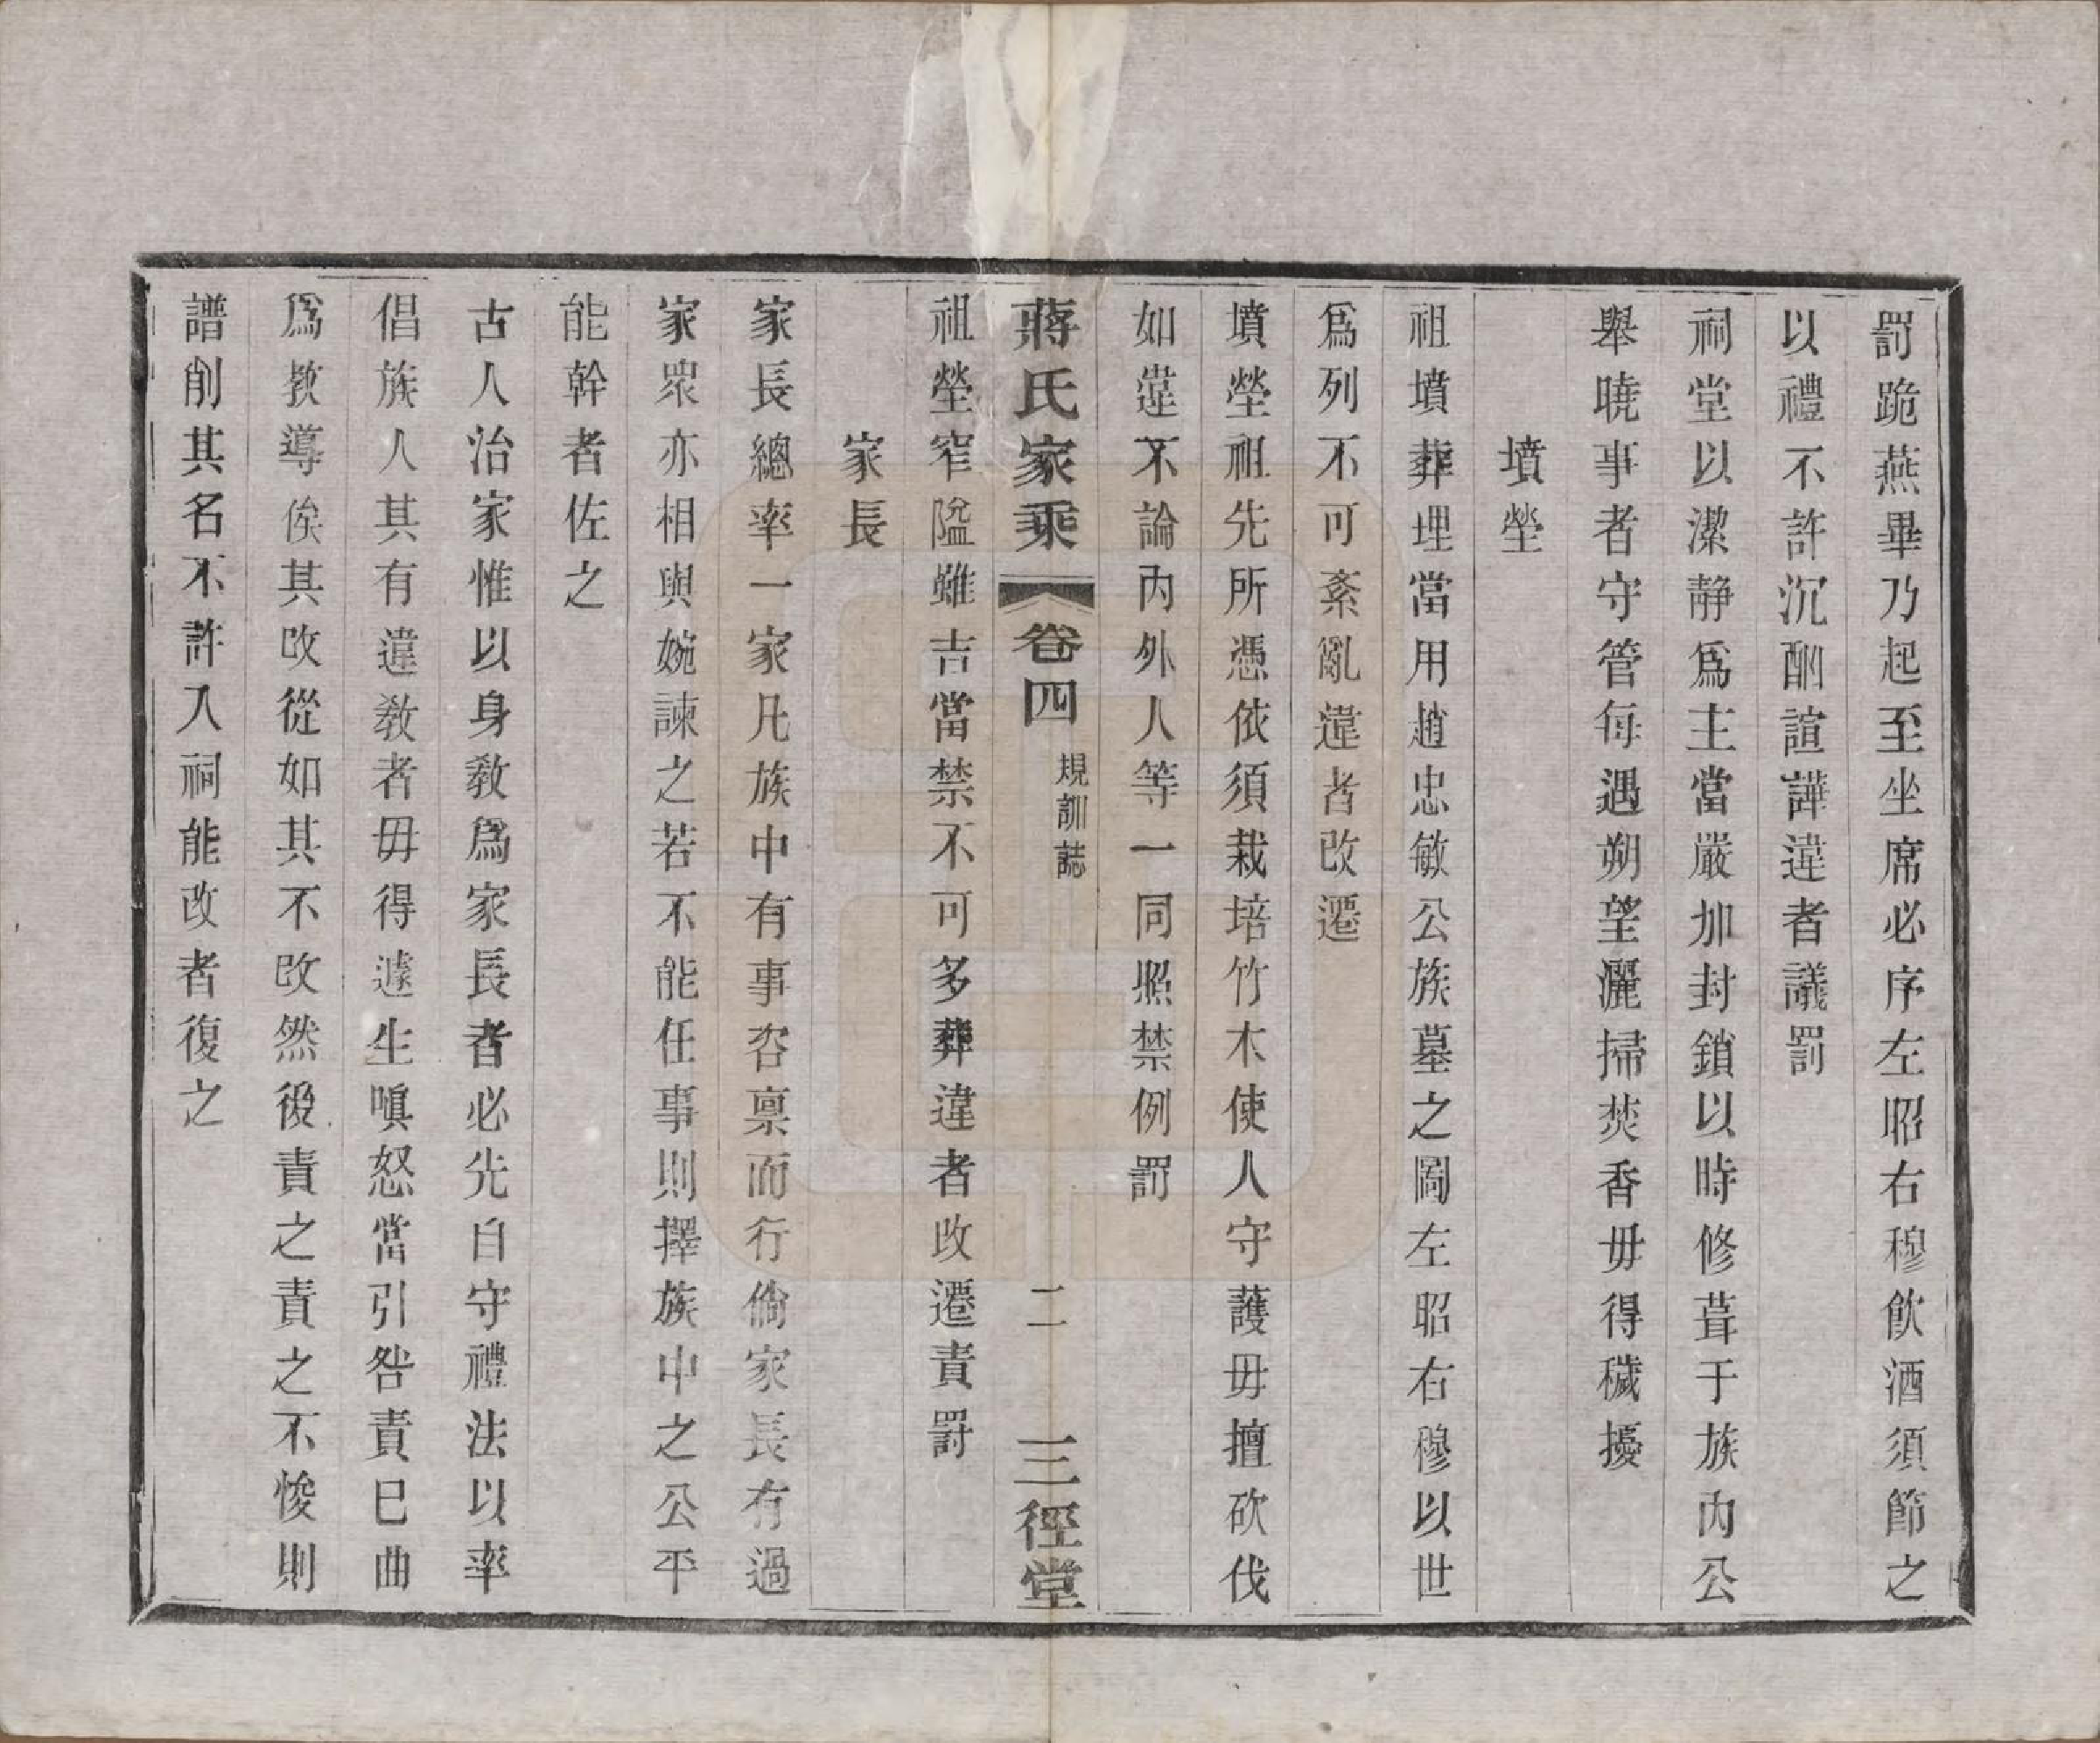 罰跪燕畢乃起至坐席必序左昭右穆飮酒須節之
以禮不許沉酗諠譁違者議罰
祠堂以潔静爲主當嚴加封鎖以時修葺于族内公
舉曉事者守管每遇朔望灑掃焚香毋得穢擾
墳塋
祖墳葬埋當用趙忠敏公族墓之圖左昭右穆以世
爲列不可紊亂違者改遷
墳塋祖先所憑依須栽培竹木使人守護毋擅砍伐
如違不論内外人等一同照禁例罰
蔣氏家乘
卷四
規訓誌
二
三徑堂
祖塋窄隘雖吉當禁不可多葬違者改遷責罰
家長
家長總率一家凡族中有事咨禀而行倘家長有過
家衆亦相與婉諫之若不能任事則擇族中之公平
能幹者佐之
古人治家惟以身敎爲家長者必先自守禮法以率
倡族人其有違敎者毋得遽生嗔怒當引咎責巳曲
爲敎導俟其改從如其不改然後責之責之不悛則
譜削其名不許入祠能改者復之